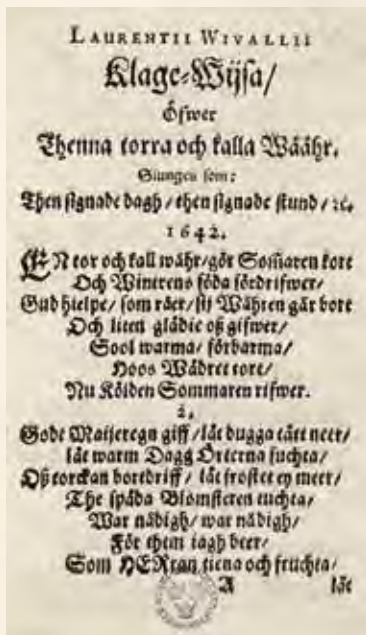 LAURENTII WIVALLII
Klage-Wijsa/
Öfwer
Thenna torra och kalla Wåähr.
Siungen som:
Then signade dagh/ then signade stund/ ꝛc.
1642.
EN tor och kall währ/ gör Som̃aren kort
Och Wintrens föda fördrifwer/
Gud hielpe/ som råer/ sij Währen går bort
Och liten glädie oß gifwer/
Sool warma/ förbarma/
Hoos Wädret tort/
Nu Kölden Sommaren rifwer.
2.
Gode Maijeregn giff/ låt dugga tätt neer/
låt warm Dagg Örterna fuchta/
Oß torckan bortdriff/ låt frostet ey meer/
The späda Blomsteren tuchta/
War nådigh/ war nådigh/
För them iagh beer/
Som HERran tiena och fruchta/
A låt